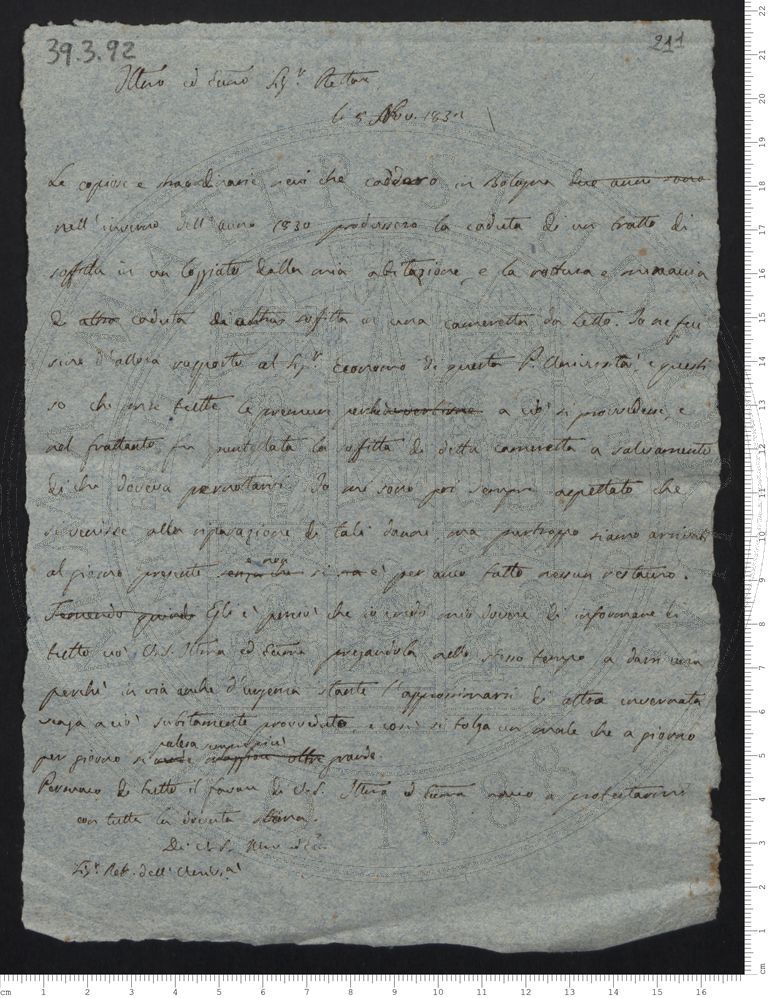 39.3.92
211
Illmo ed Ecmo Sigr. Rettore
li 5 Nov. 1832
Le copiose e straordinarie nevi che caddero in Bologna due anni sono
nell'inverno dell'anno 1830 produssero la caduta di un tratto di
soffitta in un loggiato della mia abitazione, e la rottura e minaccia
di altra caduta di altra soffitta in una cameretta da Letto. Io ne feci
sino d'allora rapporto al Sigr. Economo di questa P. Università, e questi
so che mise tutte le premure perchè a ciò si provvedesse, e
nel frattanto fu puntellata la soffitta di detta cameretta a salvamento
di chi doveva pernottarvi. Io mi sono poi sempre aspettato che
si venisse alla riparazione di tali danni ma purtroppo siamo arrivati
e non
al giorno presente senza che si è per anco fatto nessun restauro.
Egli è perciò che io credo mio dovere di informarne di
tutto ciò V.S. Illma ed Ecma pregandola nello stesso tempo a darsi cura
perchè in via anche d'urgenza stante l'approssimarsi di altra invernata
venga a ciò subitamente provveduto, e così si tolga un male che a giorno
palesa sempre più
per giorno si rende maggiore oltre grande.
Persuaso di tutto il favore di V.S. Illma ed Ecma a protestarmi
con tutta la dovuta stima.
Di V.S. Illma ed Ecma
Sigr. Rett. dell'Università